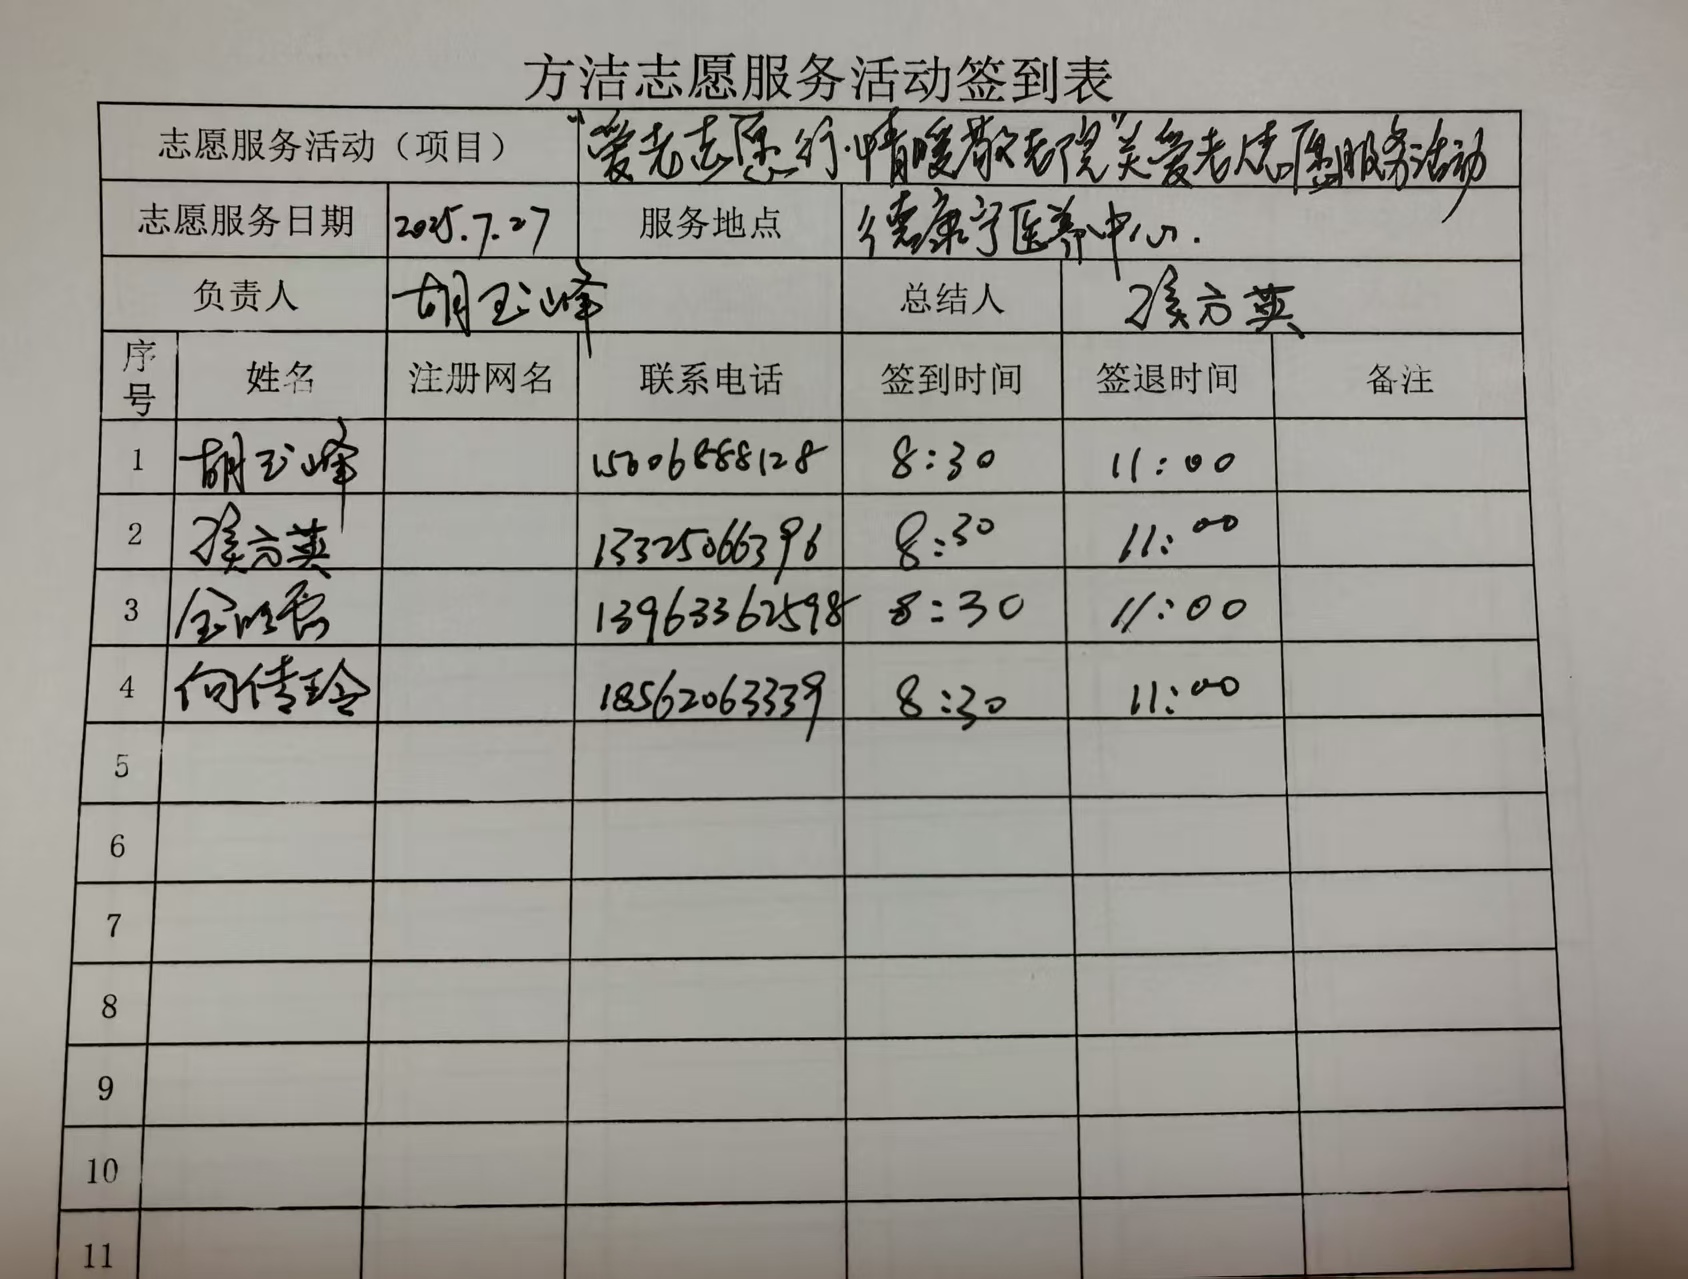 方洁志愿服务活动签到表
志愿服务活动（项目） "爱老志愿行·情暖敬老院"关爱老人志愿服务活动
志愿服务日期 2025.7.27 服务地点 德康宁医养中心.
负责人 胡玉峰 总结人 方英
序号 姓名 注册网名 联系电话 签到时间 签退时间 备注
1 胡玉峰 15606888128 8:30 11:00
2 方英 13325066396 8:30 11:00
3 13963362598 8:30 11:00
4 向倩玲 18562063339 8:30 11:00
5
6
7
8
9
10
11